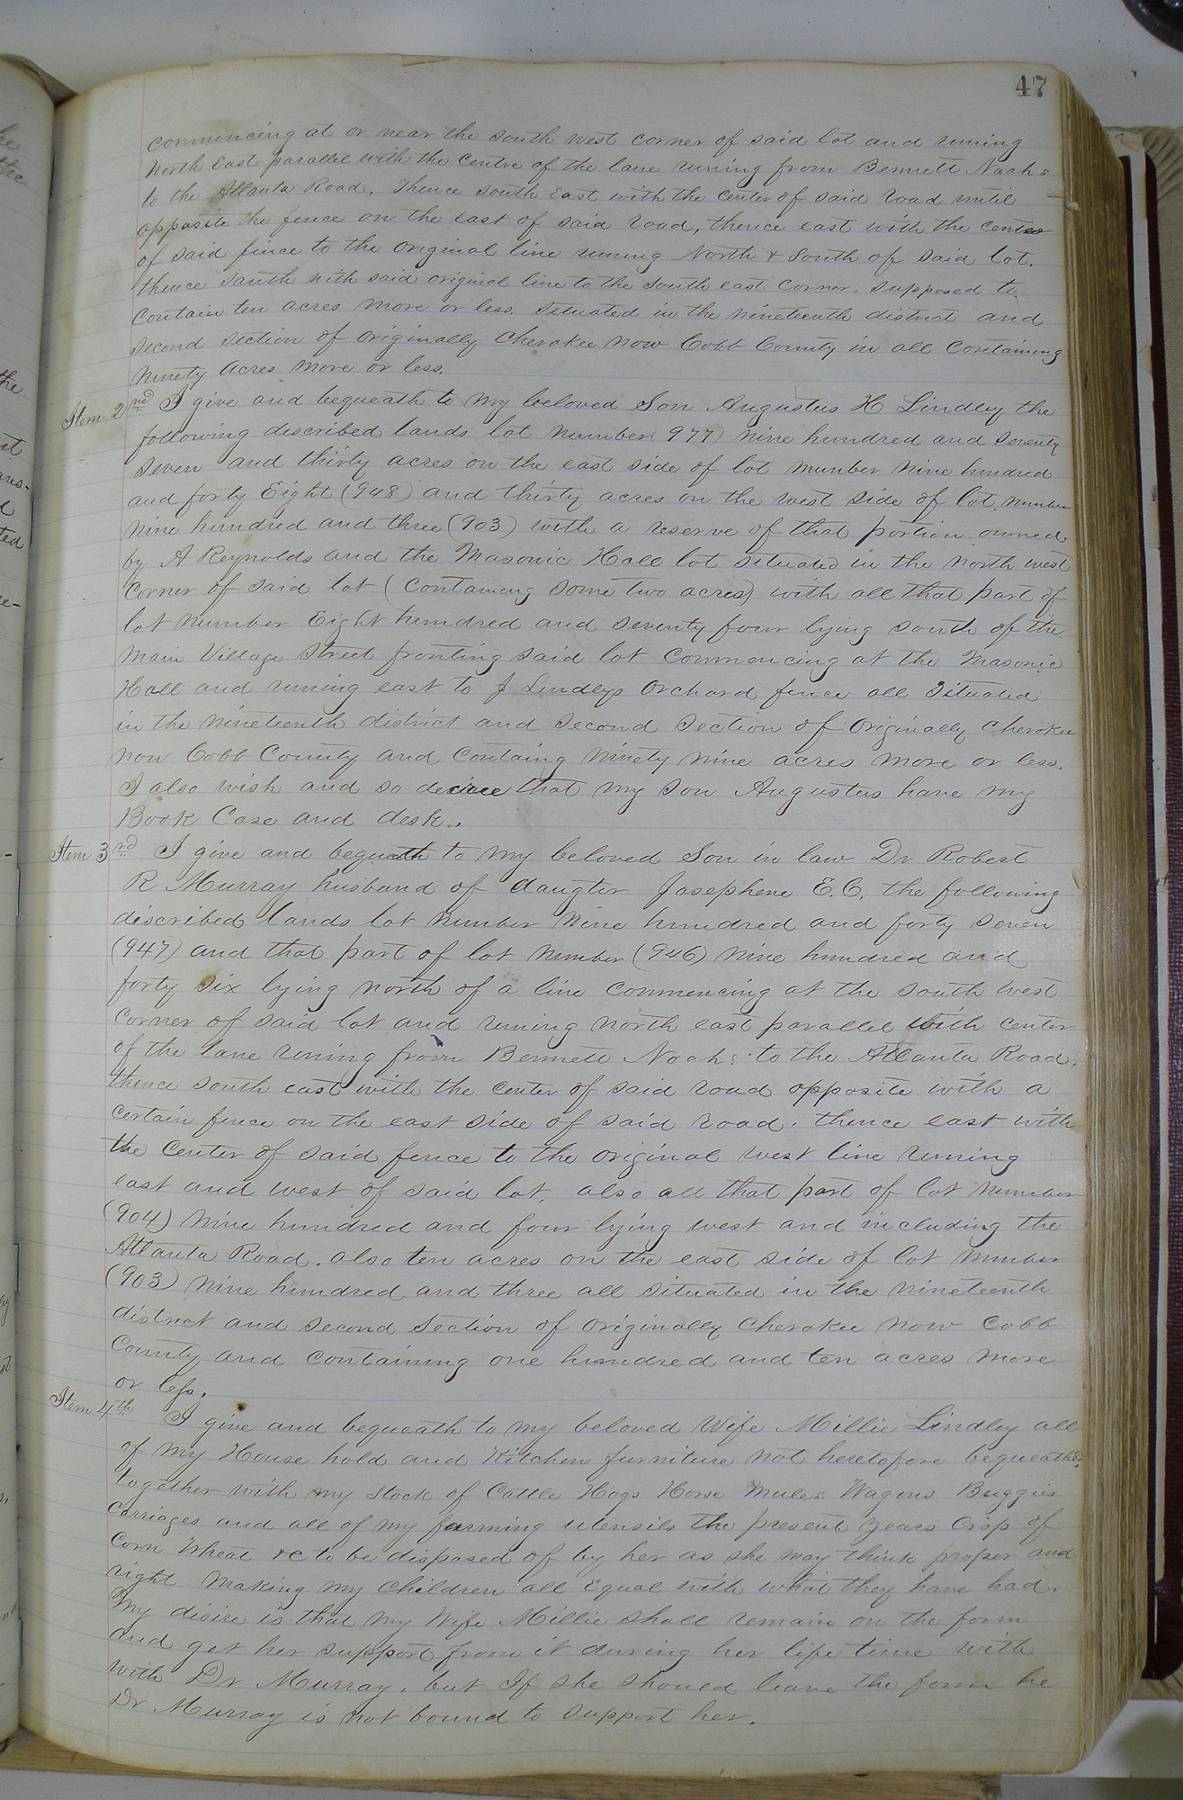 47
commencing at or near the south west corner of said lot and runing
North East parallel with the centre of the lane runing from Bennett Noahs
to the Atlanta Road. Thence south East with the center of said road until
opposite the fence on the east of said road, thence east with the center
of said fince to the original line runing North & South of said lot.
thence south with said original line to the south east corner. supposed to
contain ten acres more or less. situated in the nineteenth district and
second section of originally Cherokee now Cobb County in all containing
ninety acres more or less.
Item 2nd I give and bequeath to my beloved Son Augustus H Lindley the
following described lands lot number (977) nine hundred and seventy
seven and thirty acres on the east side of lot number nine hundred
and forty Eight (948) and thirty acres on the west side of lot number
nine hundred and three (903) with a reserve of that portion owned
by A Reynolds and the Masonic Hall lot situated in the north west
corner of said lot (containing some two acres) with all that part of
lot number Eight hundred and seventy four lying south of the
main Village street fronting said lot commencing at the Masonic
Hall and runing east to J Lindleys Orchard fence all situated
in the nineteenth district and second section of originally Cherokee
now Cobb County and containg ninety nine acres more or less.
I also wish and so desire that my son Augustus have my
Book Case and desk.
Item 3rd I give and bequeath to my beloved Son in law Dr Robert
R Murray husband of daugter Josephene E.C. the following
discribed lands lot number nine hundred and forty seven
(947) and that part of lot number (946) nine hundred and
forty six lying north of a line commencing at the south west
corner of said lot and runing north east parallel with center
of the lane runing from Bennett Noahs to the Atlanta Road.
thence south east with the center of said road opposite with a
certain fence on the east side of said road. thence east with
the center of said fence to the original west line runing
east and west of said lot. also all that part of lot number
(904) nine hundred and four lying west and including the
Atlanta Road. also ten acres on the east side of lot number
(903) nine hundred and three all situated in the nineteenth
district and second section of originally Cherokee now Cobb
County and containing one hundred and ten acres more
or less.
Item 4th I give and bequeath to my beloved Wife Millie Lindley all
of my House hold and Kitchen furniture not heretofore bequeathed
together with my stock of Cattle Hogs Horse Mules Wagons Buggies
Carriages and all of my farming utensils the present years Crop of
Corn Wheat &c to be disposed of by her as she may think proper and
right making my children all Equal with what they have had.
My disire is that my Wife Millie shall remain on the farm
and get her support from it during her life time with
with Dr Murray. but If she should leave the farm he
Dr Murray is not bound to support her.